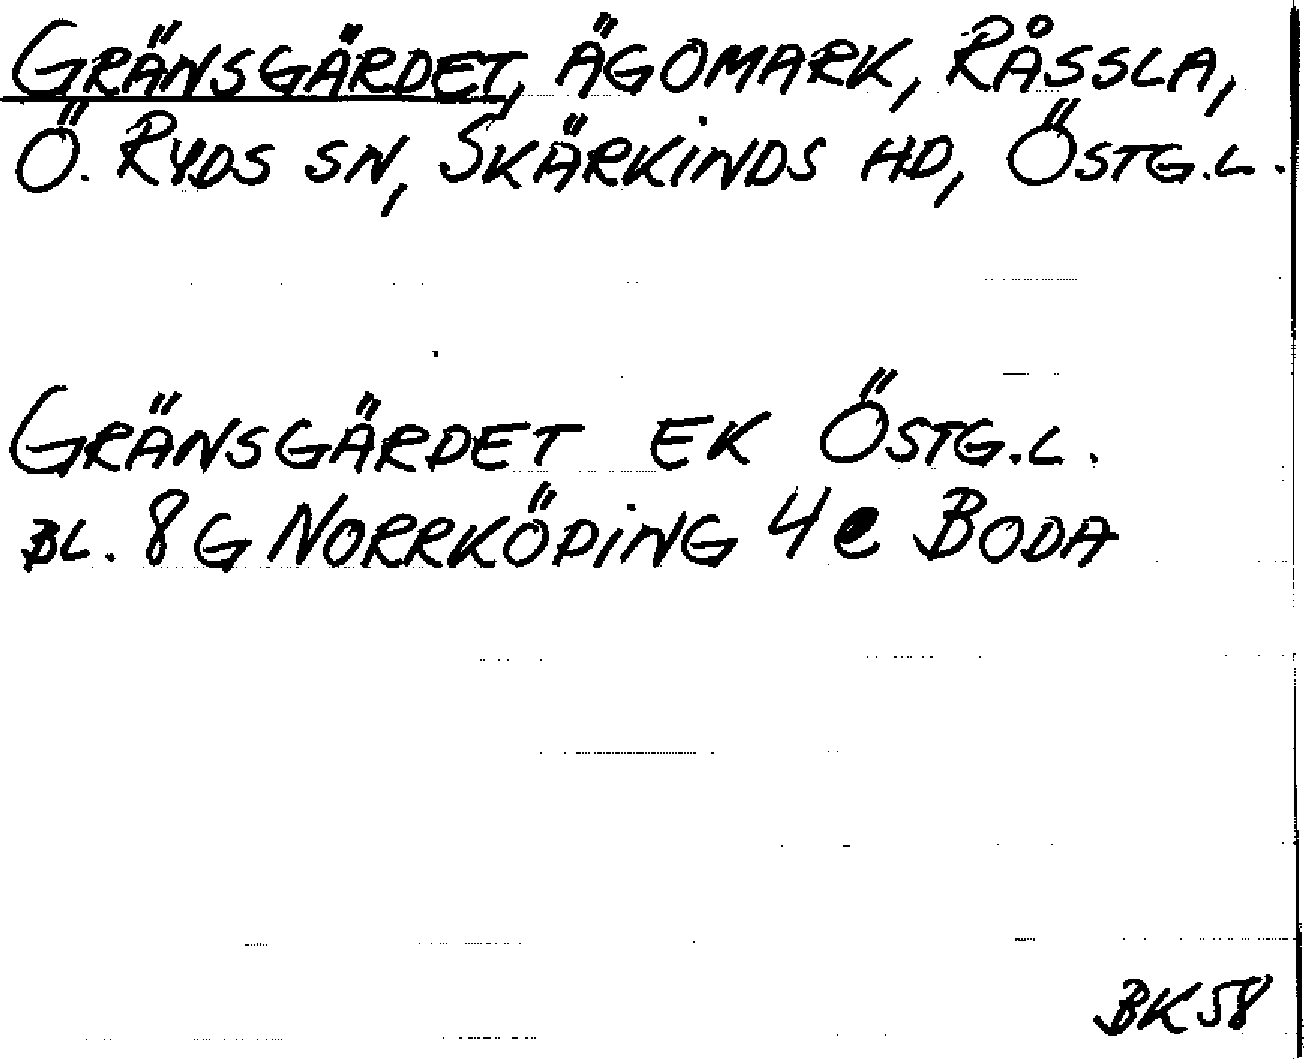 GRÄNSGÄRDET, ÄGOMARK, RÅSSLA,
Ö. RYDS SN, SKÄRKINDS HD, ÖSTG.L.
GRÄNSGÄRDET EK ÖSTG.L.
BL. 8G NORRKÖPING 4e BODA
BK58